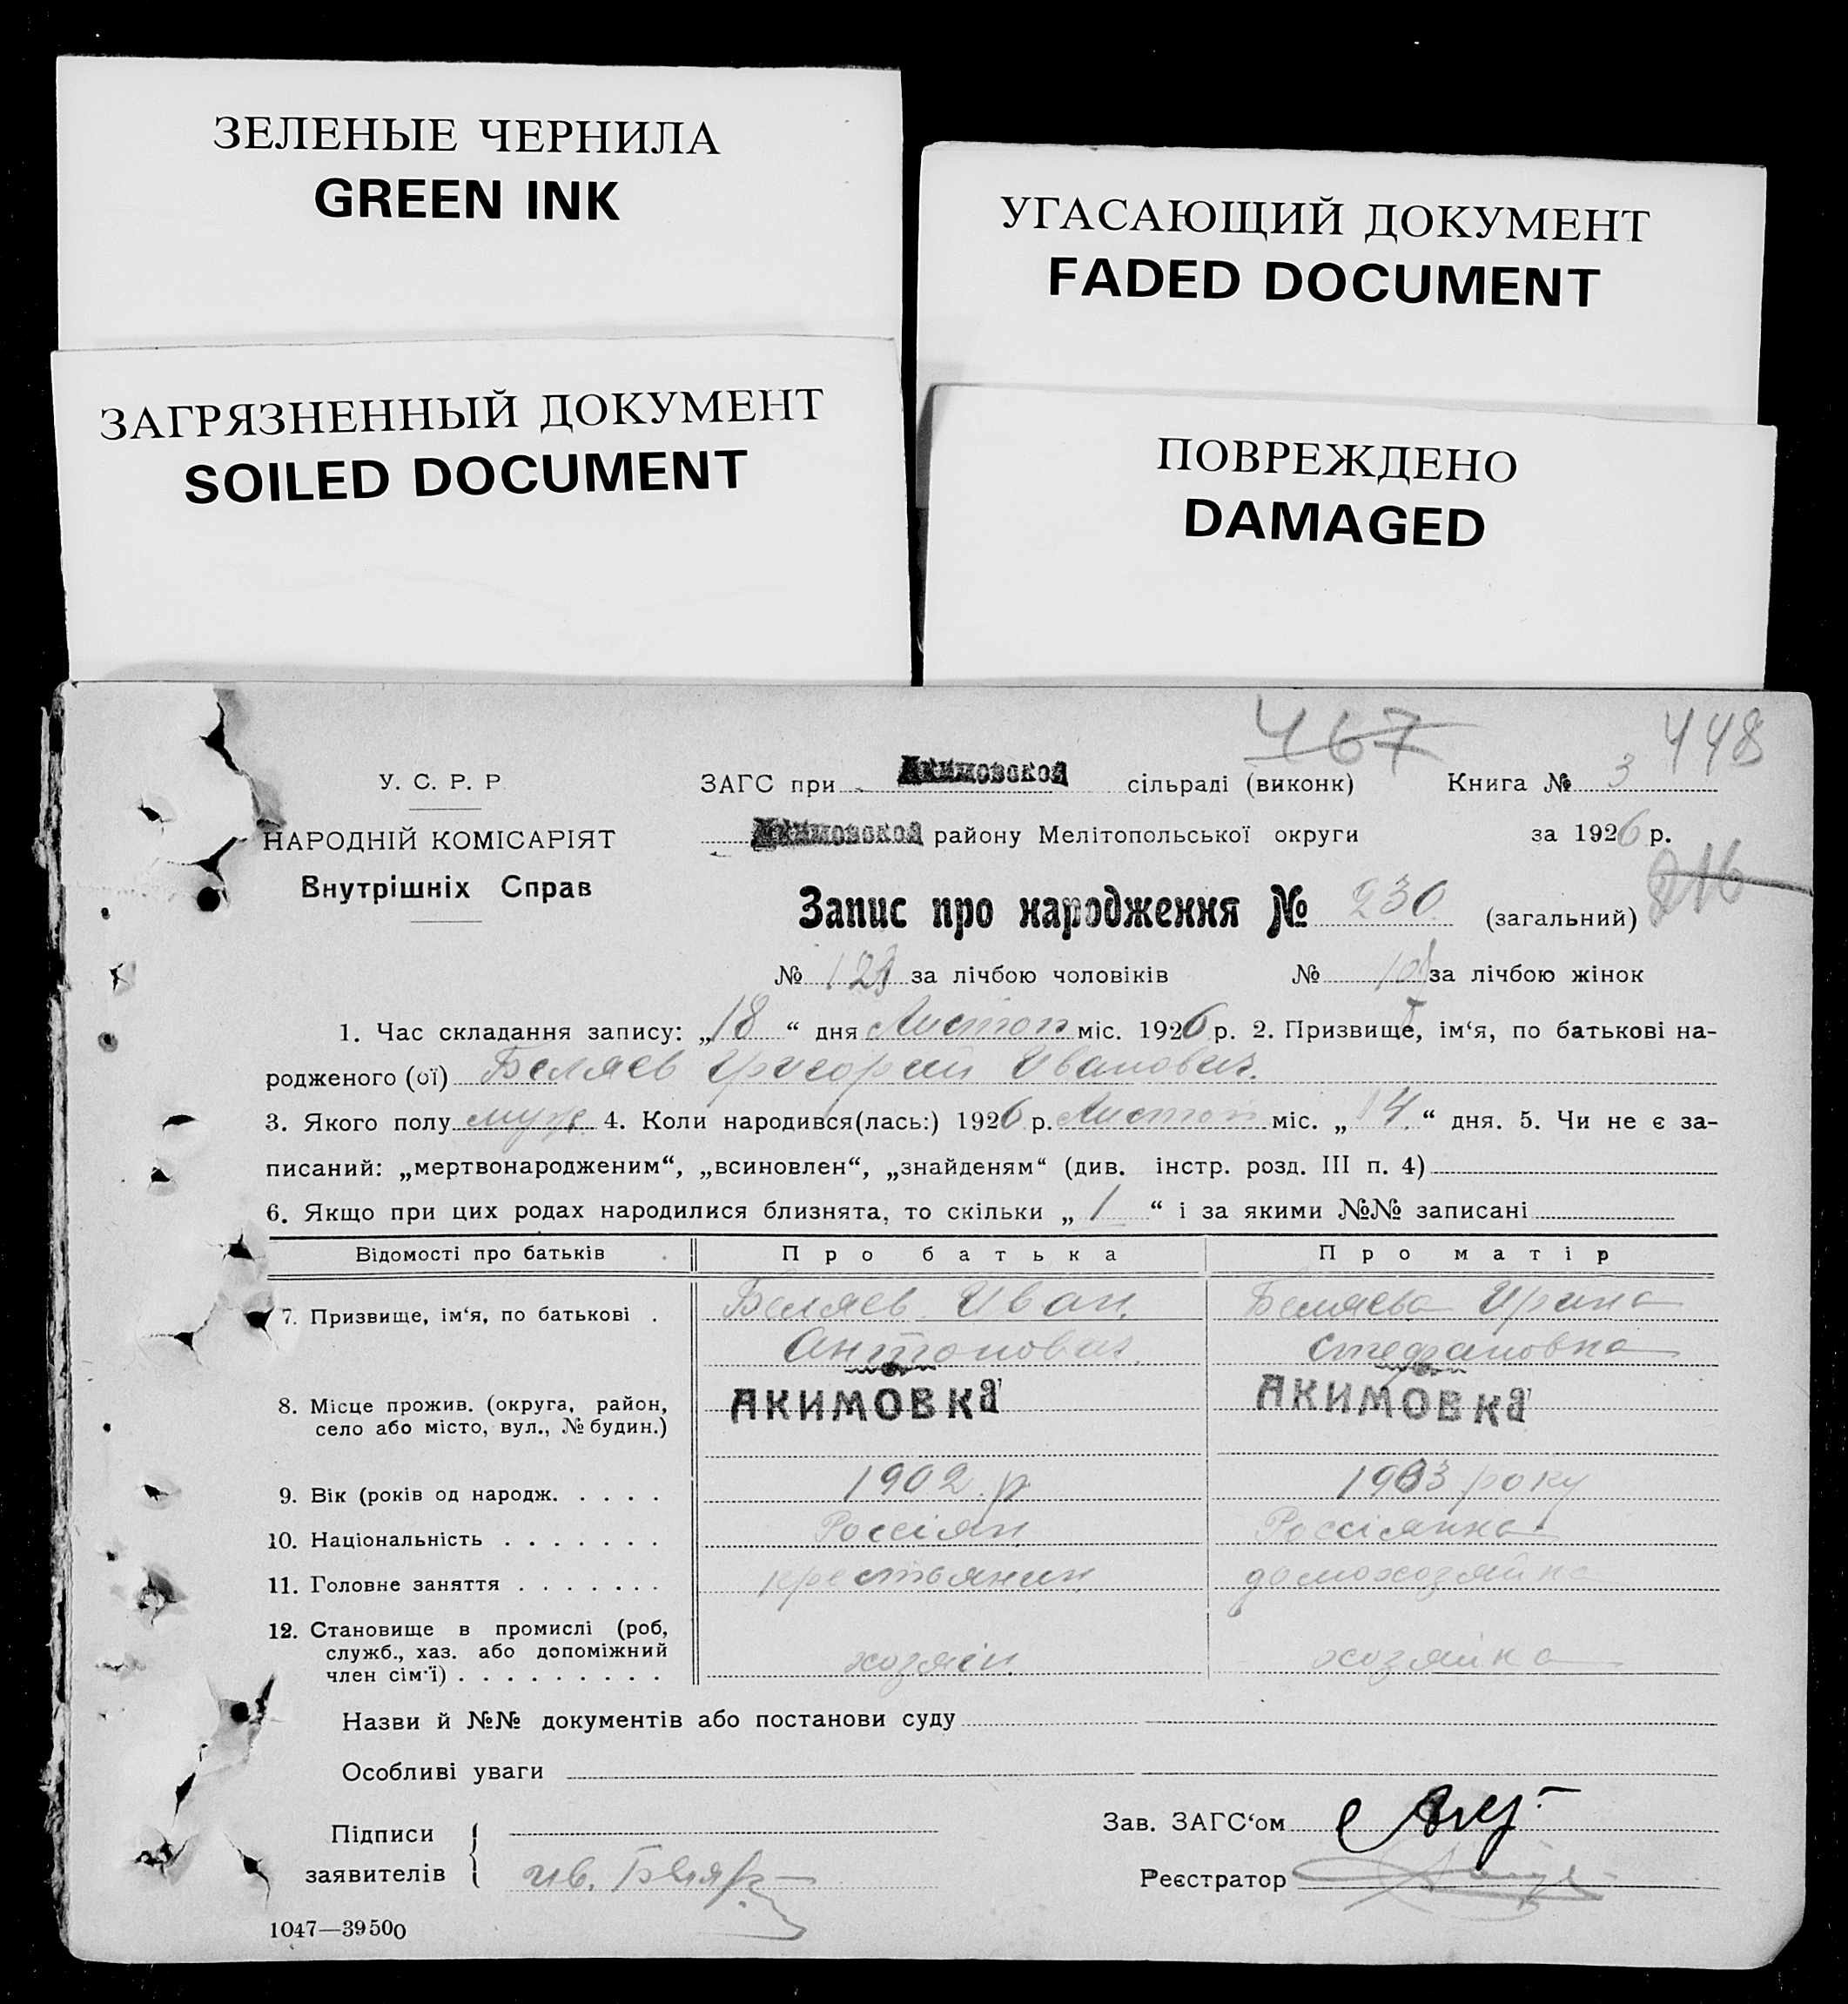 ЗЕЛЕНЫЕ ЧЕРНИЛА
GREEN INK
УГАСАЮЩИЙ ДОКУМЕНТ
FADED DOCUMENT
ЗАГРЯЗНЕННЫЙ ДОКУМЕНТ
SOILED DOCUMENT
ПОВРЕЖДЕНО
DAMAGED
467 448
У. С. Р. Р.
ЗАГС при Акимовской сільраді (виконк) Книга № 3
НАРОДНІЙ КОМІСАРІЯТ
Акимовской району Мелітопольської округи за 1926 р.
Внутрішніх Справ
216
Запис про народження № 230 (загальний)
№ за лічбою чоловіків № за лічбою жінок
1. Час складання запису: „18“ дня Листоп міс. 1926 р. 2. Призвище, ім‘я, по батькові на-
родженого (ої) Беляев Григорий Иванович.
3. Якого полу муж. 4. Коли народився(лась:) 1926 р. Листоп міс. „14.“ дня. 5. Чи не є за-
писаний: „мертвонародженим“, „всиновлен“, „знайденям“ (див. інстр. розд. III п. 4)
6. Якщо при цих родах народилися близнята, то скільки „1“ і за якими №№ записані
Відомості про батьків Про батька Про матір
7. Призвище, ім‘я, по батькові . Беляев Иван. Беляева Ирина
Антонович. Стефановна
8. Місце прожив. (округа, район, АКИМОВКа АКИМОВКа
село або місто, вул., № будин.)
9. Вік (років од народж. . . . . 1902 р 1903 року
10. Національність . . . . . . . Россіян. Россіянка
11. Головне заняття . . . . . . . крестьянин домохозяйка
12. Становище в промислі (роб,
служб., хаз. або допоміжний
член сім‘ї) . . . . . . . . . хозяін. хозяйка
Назви й №№ документів або постанови суду
Особливі уваги
Зав. ЗАГС‘ом
Підписи
заявителів ив. Беляев
Реєстратор
1047—39500